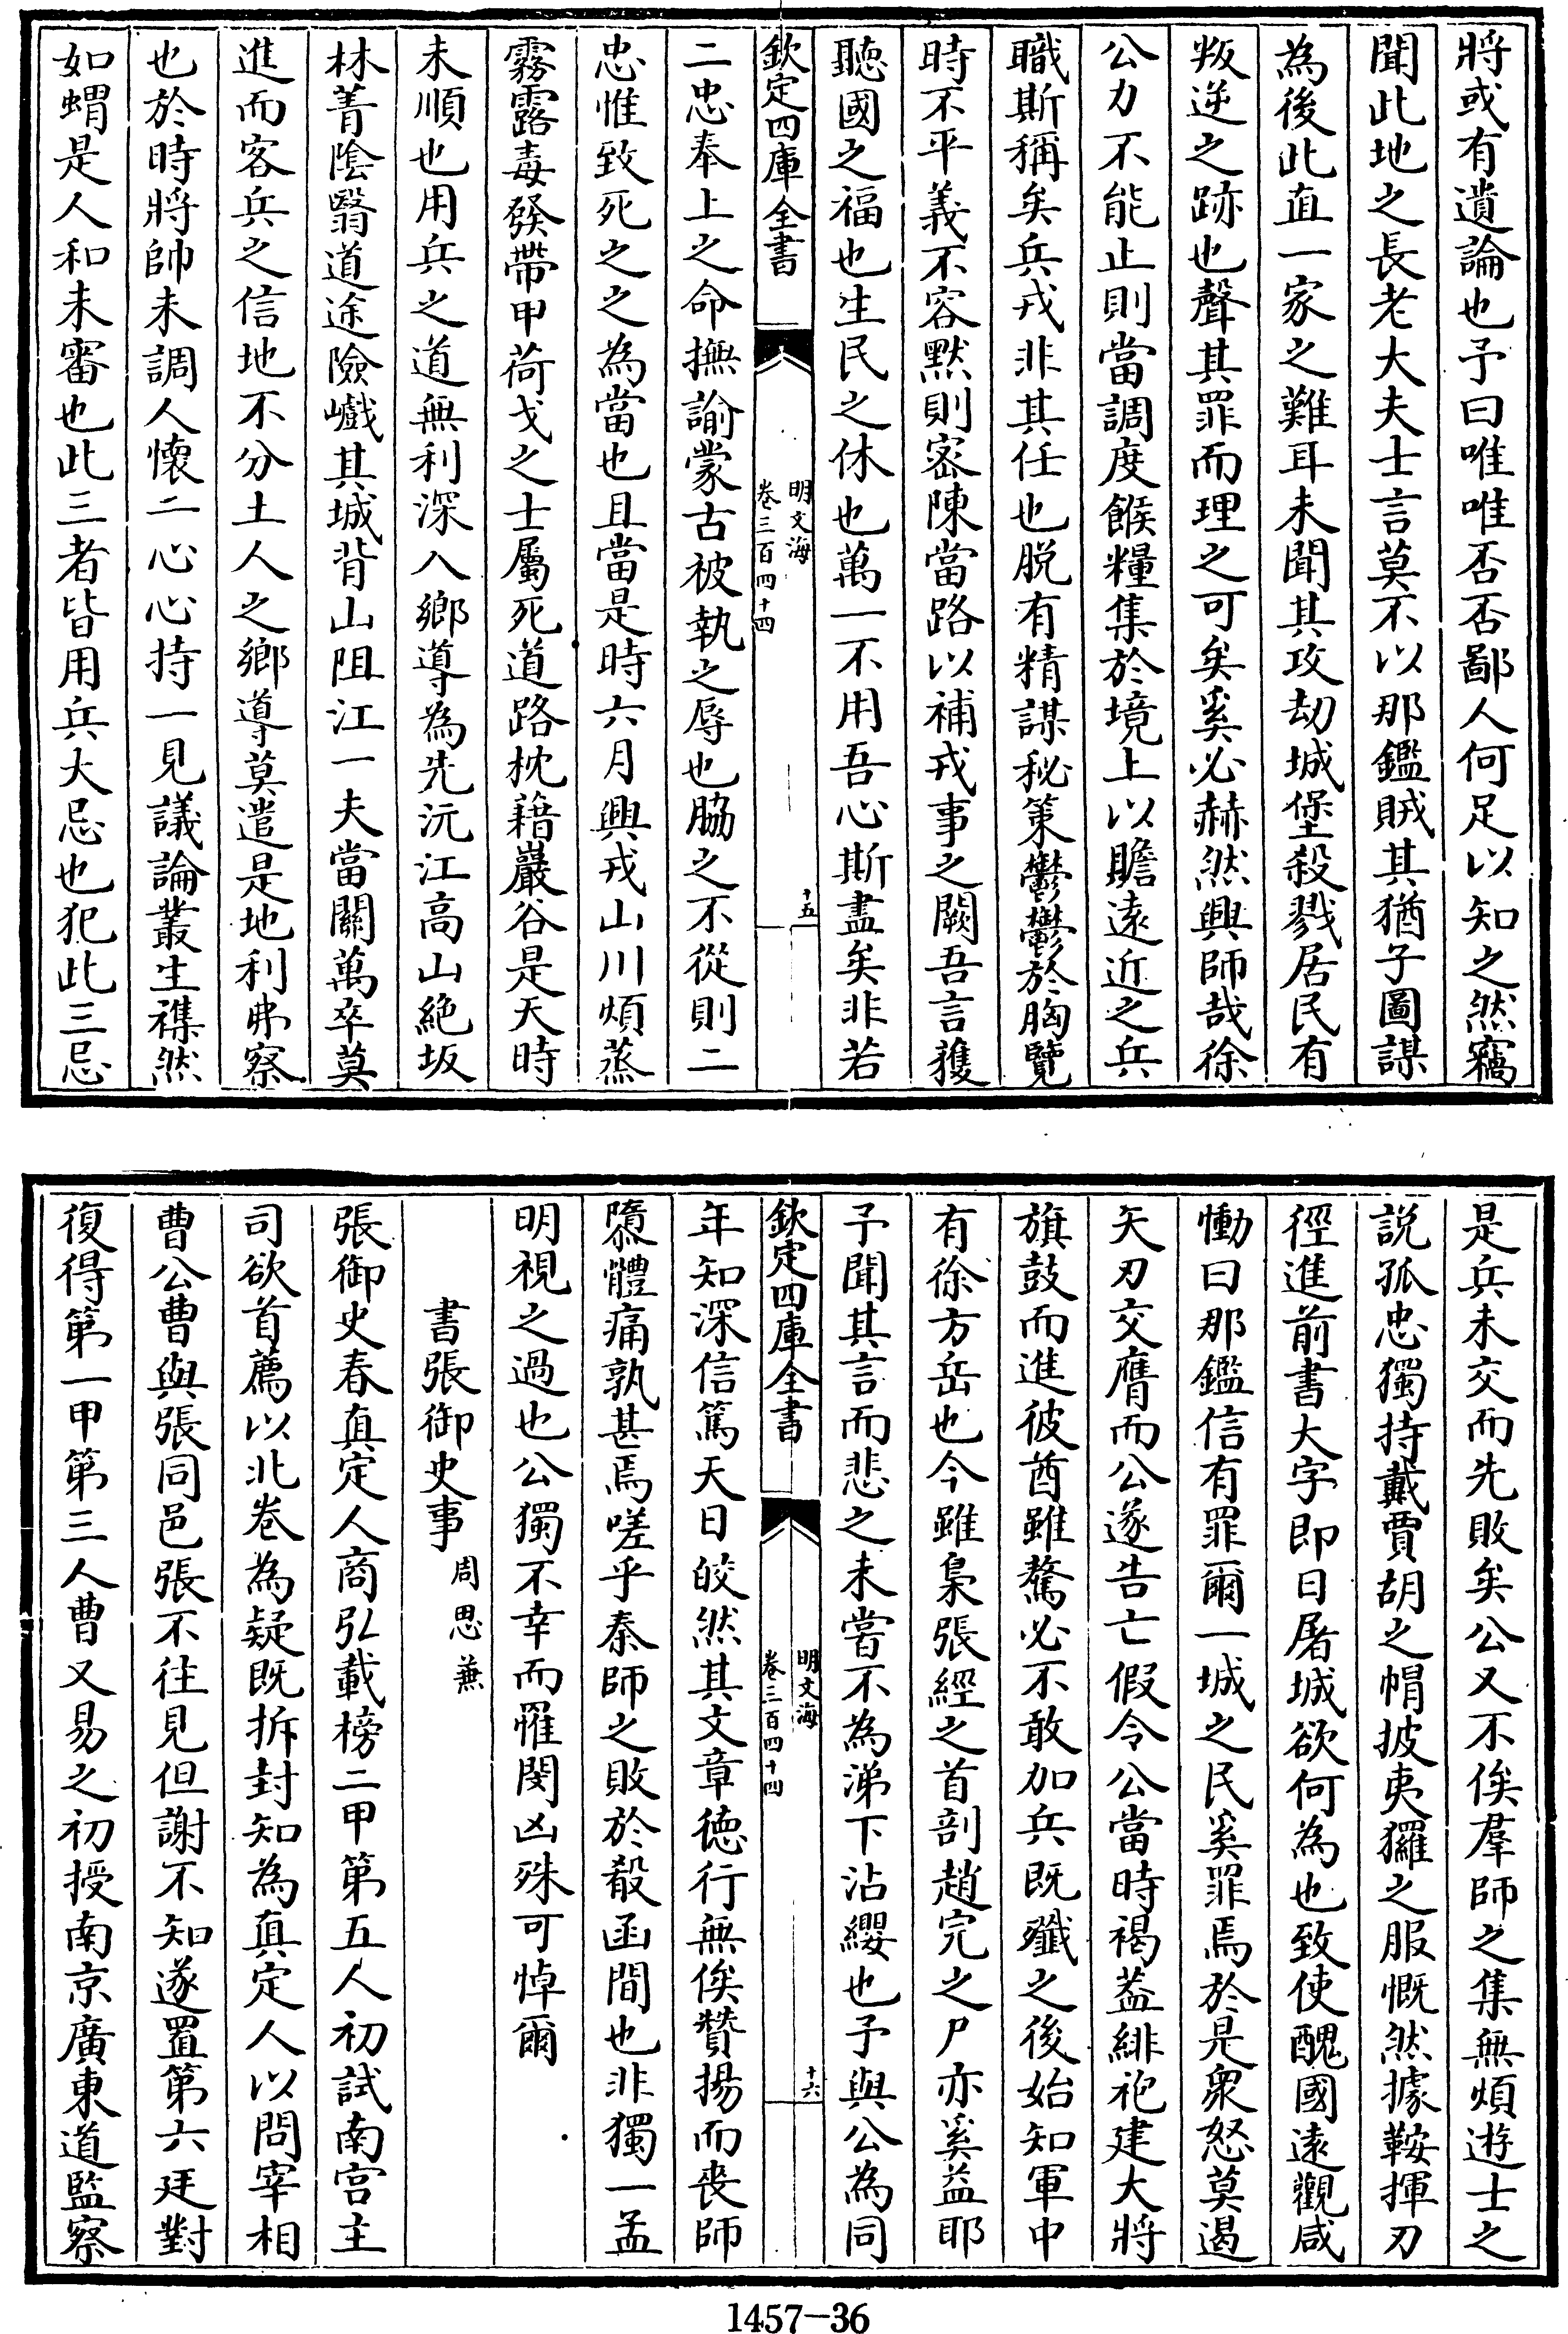 將或有遺論也予曰唯唯否否鄙人何足以知之然竊
聞此地之長老大夫士言莫不以那鑑賊其猶子圖謀
為後此直一家之難耳未聞其攻劫城堡殺戮居民有
叛逆之跡也聲其罪而理之可矣奚必赫然興師哉徐
公力不能止則當調度餱糧集於境上以贍遠近之兵
職斯稱矣兵戎非其任也脱有精謀秘策鬱鬱於胸覽
時不平義不容默則密陳當路以補戎事之闕吾言獲
聽國之福也生民之休也萬一不用吾心斯盡矣非若
欽定四庫全書
明文海
卷三百四十四
十五
二忠奉上之命撫諭蒙古被執之辱也脇之不從則二
忠惟致死之之為當也且當是時六月興戎山川煩蒸
霧露毒發帶甲荷戈之士屬死道路枕藉巖谷是天時
未順也用兵之道無利深入鄉導為先沅江高山絶坂
林菁陰翳道途險巇其城背山阻江一夫當關萬卒莫
進而客兵之信地不分土人之鄉導莫遣是地利弗察
也於時將帥未調人懷二心心持一見議論叢生襍然
如蜩是人和未審也此三者皆用兵大忌也犯此三忌
是兵未交而先敗矣公又不俟羣師之集無煩遊士之
說孤忠獨持戴賈胡之帽披夷玀之服慨然據鞍揮刃
徑進前書大字即日屠城欲何為也致使醜國遠觀咸
慟曰那鑑信有罪爾一城之民奚罪焉於是衆怒莫遏
矢刃交膺而公遂告亡假令公當時褐葢緋袍建大將
旗鼓而進彼酋雖驁必不敢加兵既殲之後始知軍中
有徐方岳也今雖梟張經之首剖趙完之尸亦奚益耶
予聞其言而悲之未嘗不為涕下沾纓也予與公為同
欽定四庫全書
明文海
卷三百四十四
十六
年知深信篤天日皎然其文章德行無俟贊揚而喪師
隳體痛孰甚焉嗟乎秦師之敗於殽函間也非獨一孟
明視之過也公獨不幸而罹閔凶殊可悼爾
書張御史事 周思兼
張御史春真定人商弘載榜二甲第五人初試南宫主
司欲首薦以北卷為疑既拆封知為真定人以問宰相
曹公曹與張同邑張不往見但謝不知遂置第六廷對
復得第一甲第三人曹又易之初授南京廣東道監察
1457-36